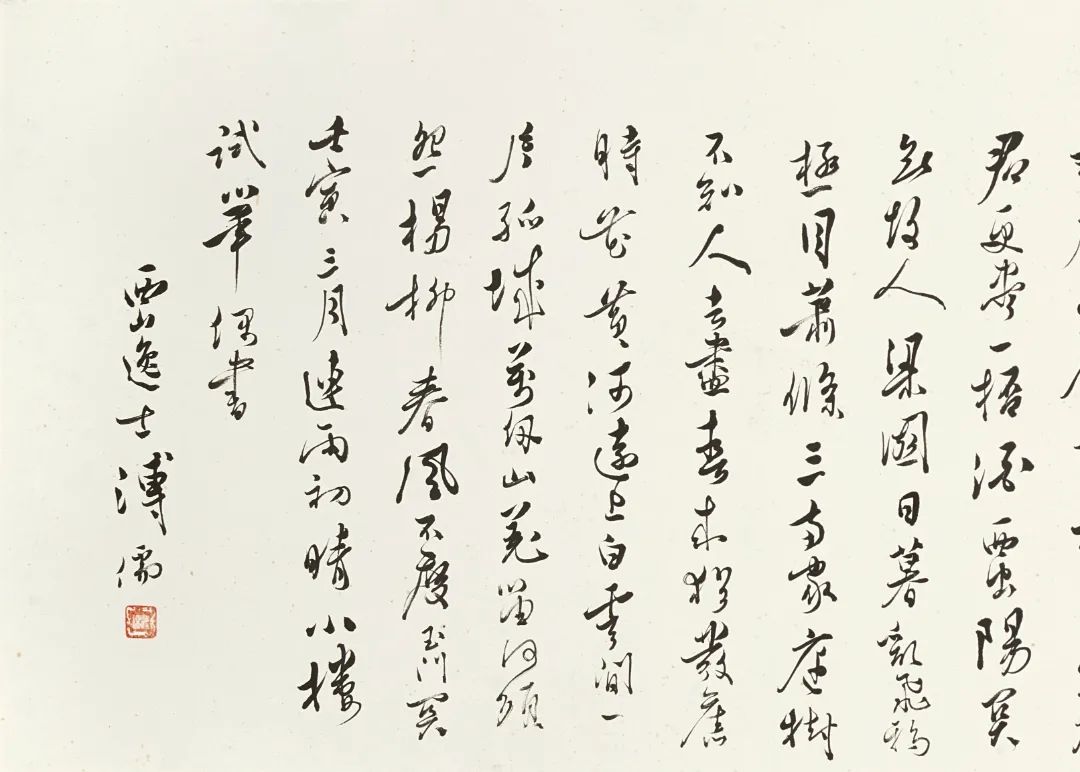 君更盡一桮酒西出陽關
無故人梁園日暮亂飛鴉
極目蕭條三兩家庭樹
不知人去盡春來猶發舊
時花黃河遠上白雲間一
片孤城萬仞山羌笛何須
怨楊柳春風不度玉門關
壬寅三月連雨初晴小樓
試筆偶書
西山逸士溥儒